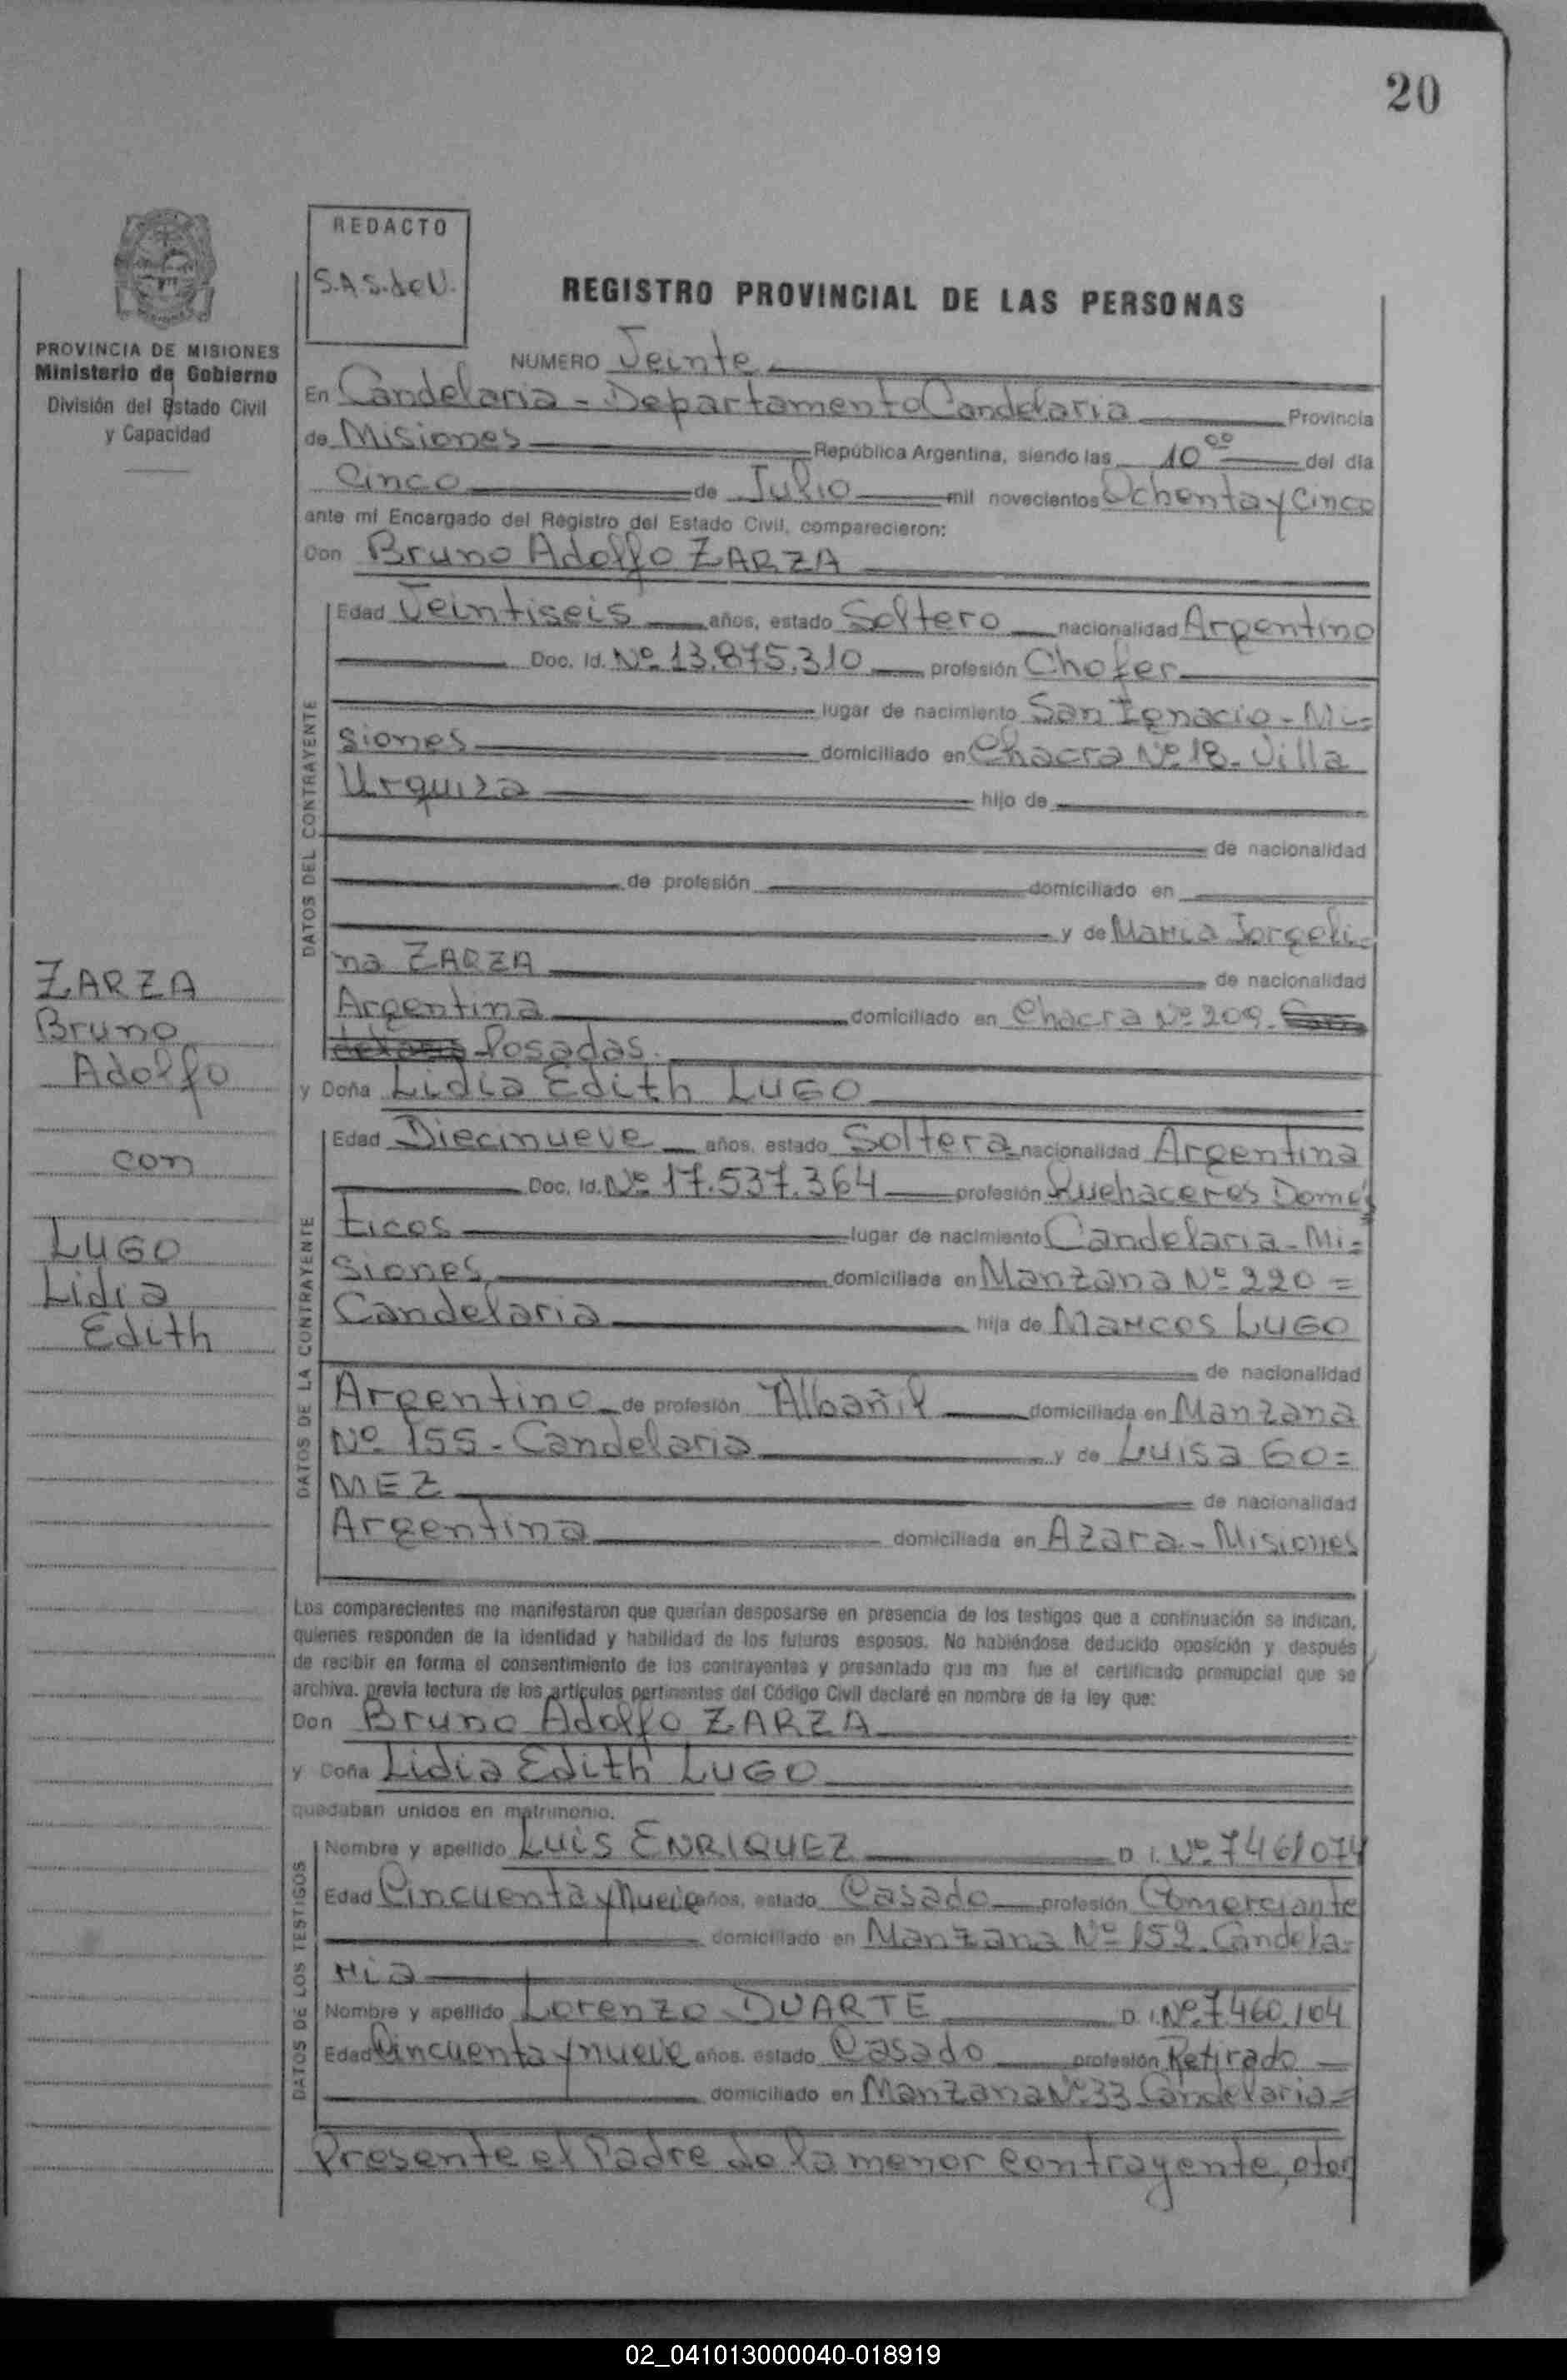 20
REDACTO
S.A.S. de V.
REGISTRO PROVINCIAL DE LAS PERSONAS
PROVINCIA DE MISIONES
Ministerio de Gobierno
División del Estado Civil
y Capacidad
NUMERO Veinte
En Candelaria - Departamento Candelaria Provincia
de Misiones República Argentina, siendo las 10 00 del día
Cinco de Julio mil novecientos Ochenta y Cinco
ante mi Encargado del Registro del Estado Civil, comparecieron:
Don Bruno Adolfo ZARZA
DATOS DEL CONTRAYENTE
Edad Veintiseis años, estado Soltero nacionalidad Argentino
Doc. Id. Nº 13.875.310 profesión Chofer
lugar de nacimiento San Ignacio - Mi=
siones domiciliado en Chacra Nº 18 - Villa
Urquiza hijo de
de nacionalidad
de profesión domiciliado en
y de Maria Jorgeli=
na ZARZA de nacionalidad
Argentina domiciliado en Chacra Nº 209 - Can
delaria Posadas.
y Doña Lidia Edith LUGO
ZARZA
Bruno
Adolfo
con
LUGO
Lidia
Edith
DATOS DE LA CONTRAYENTE
Edad Diecinueve años, estado Soltera nacionalidad Argentina
Doc. Id. Nº 17.537.364 profesión Quehaceres Domés
ticos lugar de nacimiento Candelaria - Mi=
siones domiciliada en Manzana Nº 220 =
Candelaria hija de Marcos LUGO
de nacionalidad
Argentino de profesión Albañil domiciliada en Manzana
Nº 155 - Candelaria y de Luisa GO=
MEZ de nacionalidad
Argentina domiciliada en Azara - Misiones
Los comparecientes me manifestaron que querían desposarse en presencia de los testigos que a continuación se indican,
quienes responden de la identidad y habilidad de los futuros esposos. No habiéndose deducido oposición y después
de recibir en forma el consentimiento de los contrayentes y presentado que me fue el certificado prenupcial que se
archiva, previa lectura de los artículos pertinentes del Código Civil declaré en nombre de la ley que:
Don Bruno Adolfo ZARZA
y Doña Lidia Edith LUGO
quedaban unidos en matrimonio.
DATOS DE LOS TESTIGOS
Nombre y apellido Luis ENRIQUEZ D. I. Nº 7461074
Edad Cincuenta y nueve años, estado Casado profesión Comerciante
domiciliado en Manzana Nº 152 Candela=
ria
Nombre y apellido Lorenzo DUARTE D. I. Nº 7.460.104
Edad Cincuenta y nueve años, estado Casado profesión Retirado
domiciliado en Manzana Nº 33 Candelaria =
Presente el Padre de la menor contrayente, otor
02_041013000040-018919